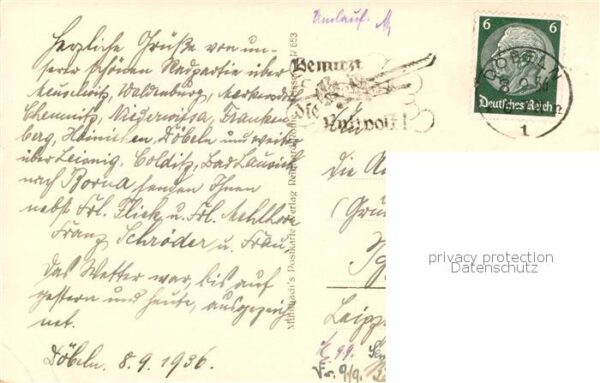 Herzliche Grüße von un-
serer schönen Radpartie über
Meuselwitz, Waldenburg,
Chemnitz, Niederwiesa, Franken-
berg, Hainichen, Döbeln und weiter
über Leisnig, Colditz, Bad Lausick
nach Borna senden Ihnen
nebst Frl. Flick u. Frl.
Franz Schröder u. Frau
Das Wetter war, bis auf
gestern und heute, ausgezeich
net.
Döbeln. 8. 9. 1936.
Umlauf.
Benutzt
die
Luftpost!
6 6
Deutsches Reich
DÖBELN
1
Die
(Grün
Leipz
privacy protection
Datenschutz